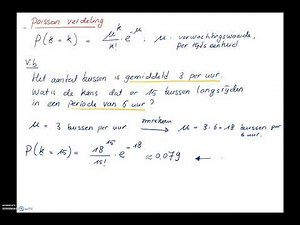 Poisson verdeling
P(k = k) = μ^k / k! · e^-μ μ = verwachtingswaarde,
per tijdseenheid
V.b
Het aantal bussen is gemiddeld 3 per uur.
Wat is de kans dat er 15 bussen langsrijden
in een periode van 6 uur?
μ = 3 bussen per uur omrekenen → μ = 3·6 = 18 bussen per
6 uur.
P(k = 15) = 18^15 / 15! · e^-18 ≈ 0,079 ←